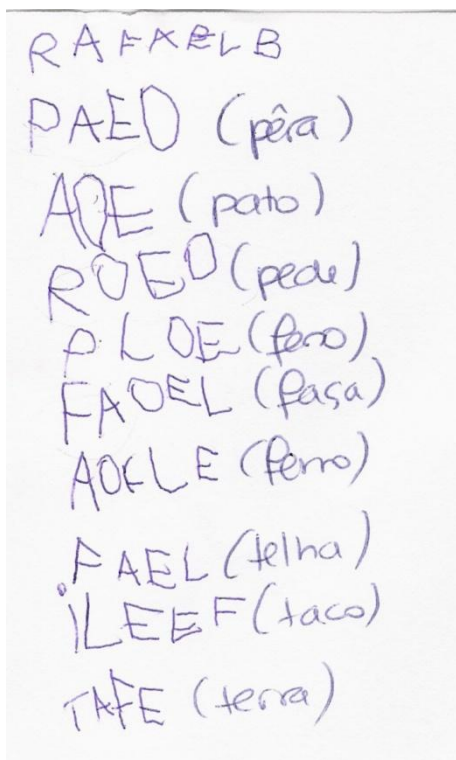 RAFAELB
PAEO (pêra)
AOE (pato)
ROEO (pede)
PLOE (feno)
FAOEL (faça)
AOELE (ferro)
FAEL (telha)
iLEEF (taco)
TAFE (terra)